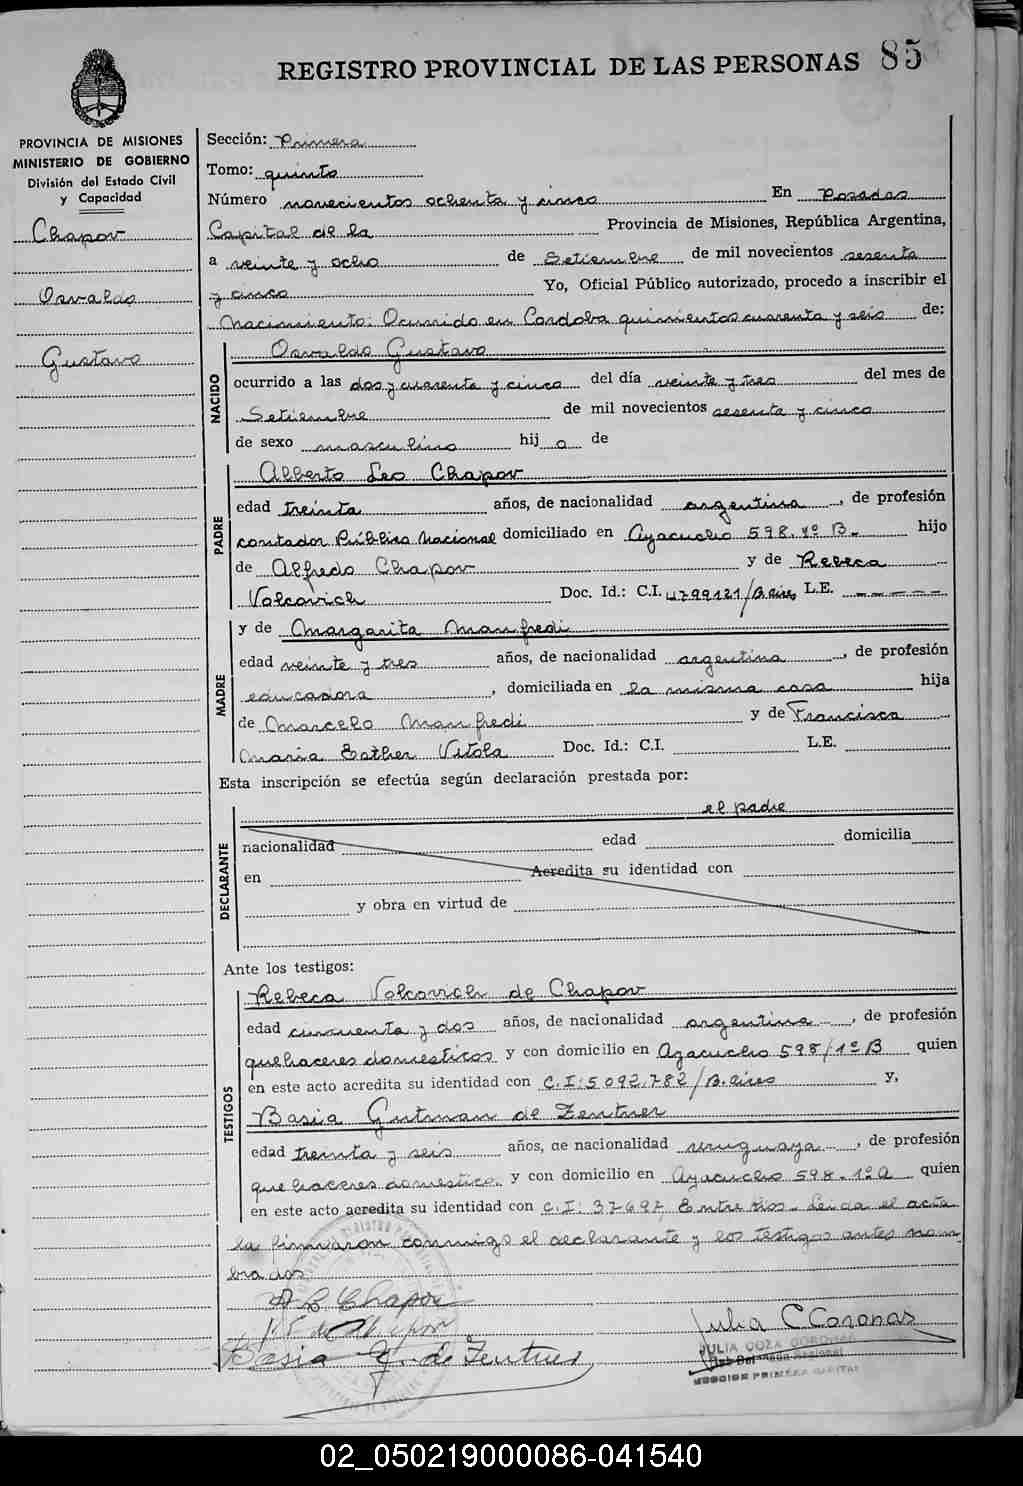 REGISTRO PROVINCIAL DE LAS PERSONAS 85
PROVINCIA DE MISIONES
MINISTERIO DE GOBIERNO
División del Estado Civil
y Capacidad
Chapov
Osvaldo
Gustavo
Sección: Primera
Tomo: quinto
Número novecientos ochenta y cinco En Posadas
Capital de la Provincia de Misiones, República Argentina,
a veinte y ocho de Setiembre de mil novecientos sesenta
y cinco Yo, Oficial Público autorizado, procedo a inscribir el
Nacimiento. Ocurrido en Cordoba quinientos cuarenta y seis de:
NACIDO
Osvaldo Gustavo
ocurrido a las dos y cuarenta y cinco del día veinte y tres del mes de
Setiembre de mil novecientos sesenta y cinco
de sexo masculino hij o de
PADRE
Alberto Leo Chapov
edad treinta años, de nacionalidad argentina, de profesión
contador Público Nacional domiciliado en Ayacucho 598.1º B. hijo
de Alfredo Chapov y de Rebeca
Volcovich Doc. Id.: C.I. 4799121/B.aires L.E. ------
MADRE
y de Margarita Manfredi
edad veinte y tres años, de nacionalidad argentina, de profesión
educadora, domiciliada en la misma casa hija
de Marcelo Manfredi y de Francisca
Maria Esther Vitola Doc. Id.: C.I. L.E.
Esta inscripción se efectúa según declaración prestada por:
DECLARANTE
el padre
nacionalidad edad domicilia
en Acredita su identidad con
y obra en virtud de
Ante los testigos:
TESTIGOS
Rebeca Volcovich de Chapov
edad cincuenta y dos años, de nacionalidad argentina, de profesión
quehaceres domesticos y con domicilio en Ayacucho 598/1º B quien
en este acto acredita su identidad con C.I: 5092.782/B.aires y,
Basia Gutman de Zentner
edad treinta y seis años, de nacionalidad uruguaya, de profesión
quehaceres domestico. y con domicilio en Ayacucho 598.1º A quien
en este acto acredita su identidad con C.I: 37697 Entre Rios. Leida el acta
la firmaron conmigo el declarante y los testigos antes nom
brados
A L Chapov
Basia G. de Zentner
Julia C Coronas
SECCION PRIMERA CAPITAL
02_050219000086-041540